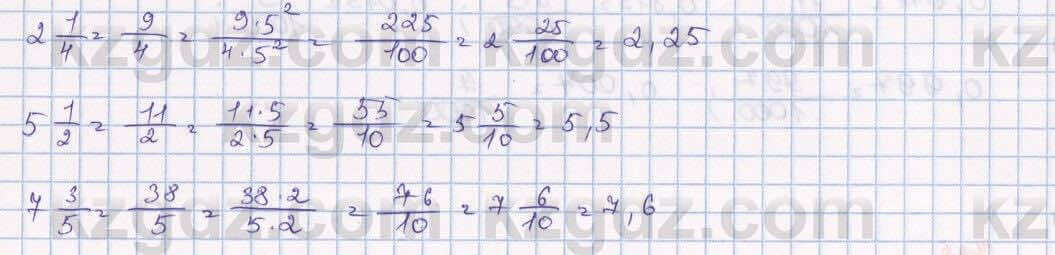 2 1/4 = 9/4 = 9·5²/4·5² = 225/100 = 2 25/100 = 2,25
5 1/2 = 11/2 = 11·5/2·5 = 55/10 = 5 5/10 = 5,5
7 3/5 = 38/5 = 38·2/5·2 = 76/10 = 7 6/10 = 7,6
kzgdz.com